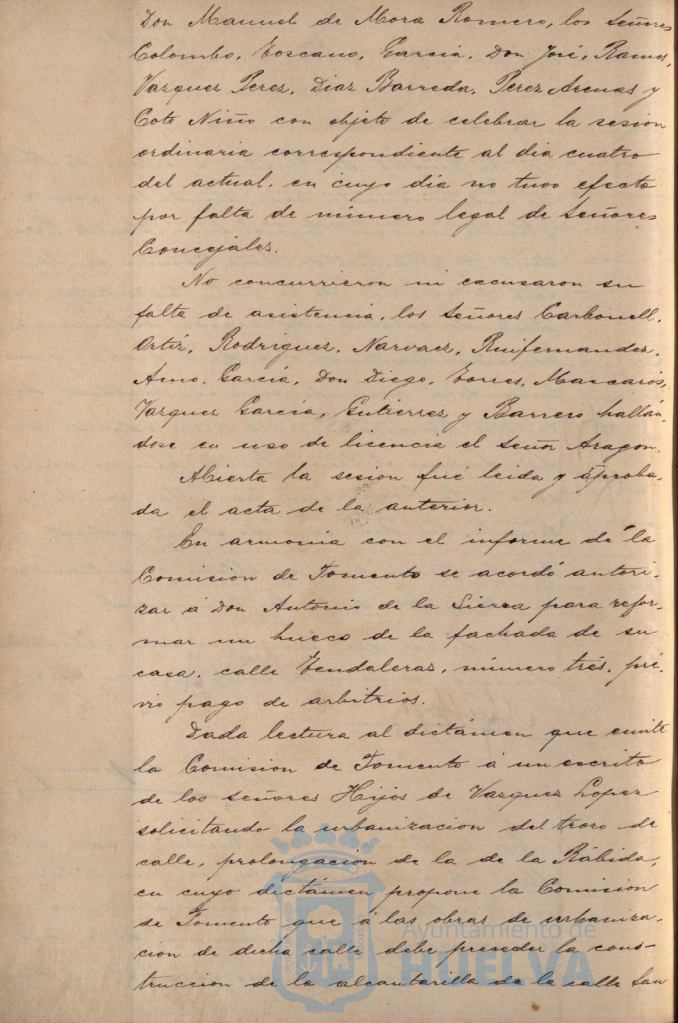 Don Manuel de Mora Romero, los Señores
Colombo, Toscano, Garcia, Don José, Ramos,
Vazquez Perez, Diaz Barreda, Perez Arenas y
Coto Niño con objeto de celebrar la sesion
ordinaria correspondiente al dia cuatro
del actual, en cuyo dia no tuvo efecto
por falta de número legal de Señores
Concejales.
No concurrieron ni escusaron su
falta de asistencia, los Señores Carbonell,
Ortiz, Rodriguez, Narvaez, Ruifernandez,
Amo, García, Don Diego, Torres, Mascarós,
Vazquez García, Gutierrez y Barrero hallán-
dose en uso de licencia el Señor Aragon.
Abierta la sesion fué leida y aproba-
da el acta de la anterior.
En armonia con el informe de la
Comision de Fomento se acordó autori-
zar á Don Antonio de la Sierra para refor-
mar un hueco de la fachada de su
casa, calle Tendaleras, número tres, pré-
vio pago de arbitrios.
Dada lectura al dictámen que emite
la Comision de Fomento á un escrito
de los Señores Hijos de Vazquez Lopez
solicitando la urbanizacion del trozo de
calle, prolongacion de la de la Rábida,
en cuyo dictámen propone la Comision
de Fomento que á las obras de urbaniza-
cion de dicha calle debe preceder la cons-
truccion de la alcantarilla de la calle San
Ayuntamiento de
HUELVA